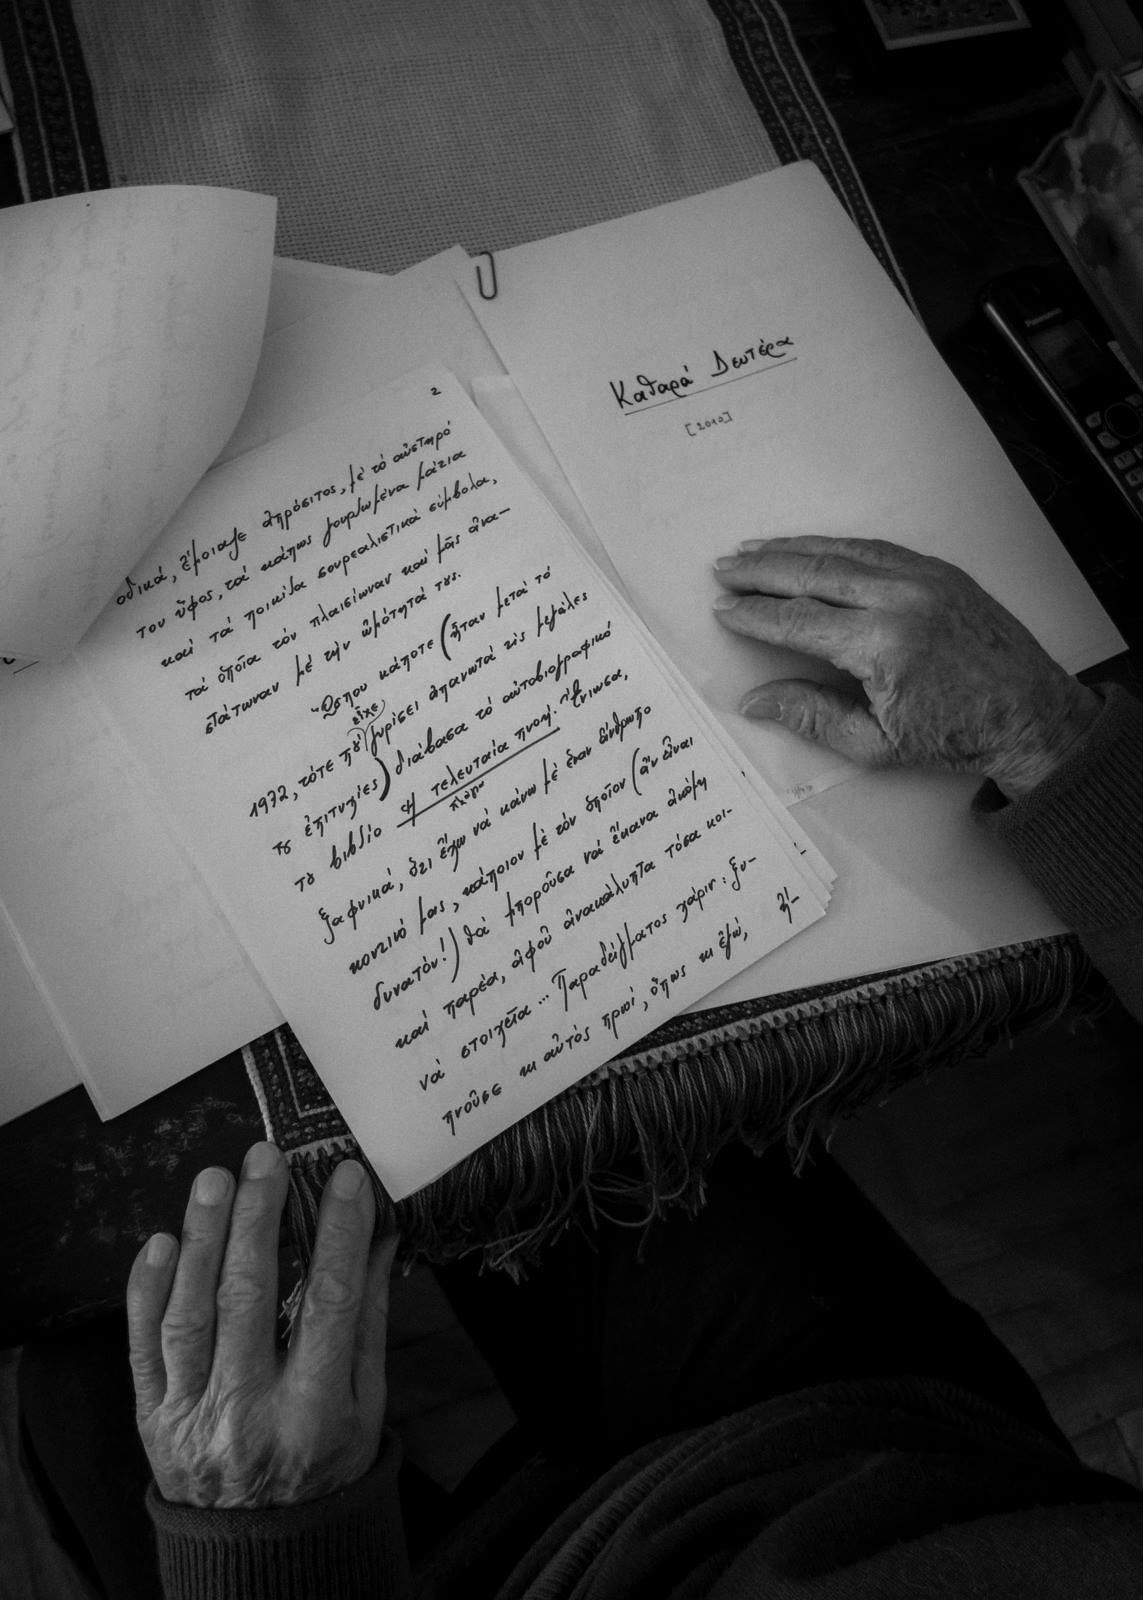 2
οδικά, ἔμοιαζε ἀπρόσιτος, μὲ τὸ αὐστηρό
του ὕφος, τὰ κάπως γουρλωμένα μάτια
καὶ τὰ ποικίλα σουρεαλιστικὰ σύμβολα,
τὰ ὁποῖα τὸν πλαισίωναν καὶ μᾶς ἀνα-
στάτωναν μὲ τὴν ὠμότητά τους.
Ὥσπου κάποτε (ἦταν μετὰ τὸ
1972, τότε ποὺ εἶχε γυρίσει ἀπανωτὰ τὶς μεγάλες
του ἐπιτυχίες) διάβασα τὸ αὐτοβιογραφικό
του βιβλίο Ἡ τελευταία πνοή. Ἔνιωσα,
πλέον
ξαφνικά, ὅτι ἔχω νὰ κάνω μὲ ἕναν ἄνθρωπο
κοντινό μας, κάποιον μὲ τὸν ὁποῖον (ἂν εἶναι
δυνατόν!) θὰ μποροῦσα νὰ ἔκανα ἀκόμη
καὶ παρέα, ἀφοῦ ἀνακάλυπτα τόσα κοι-
νὰ στοιχεῖα... Παραδείγματος χάριν: ξυ-
πνοῦσε κι αὐτὸς πρωί, ὅπως κι ἐγώ,
Καθαρά Δευτέρα
[2010]
Panasonic